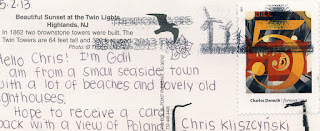 5.2.13
Beautiful Sunset at the Twin Lights
Highlands, NJ
In 1862 two brownstone towers were built. The
Twin Towers are 64 feet tall and
Photo ©
Hello Chris! I'm Gail
I am from a small seaside town
with a lot of beaches and lovely old
lighthouses.
Hope to receive a card
back with a view of Poland
Chris Kliszczyński
BILL
5
Charles Demuth
forever